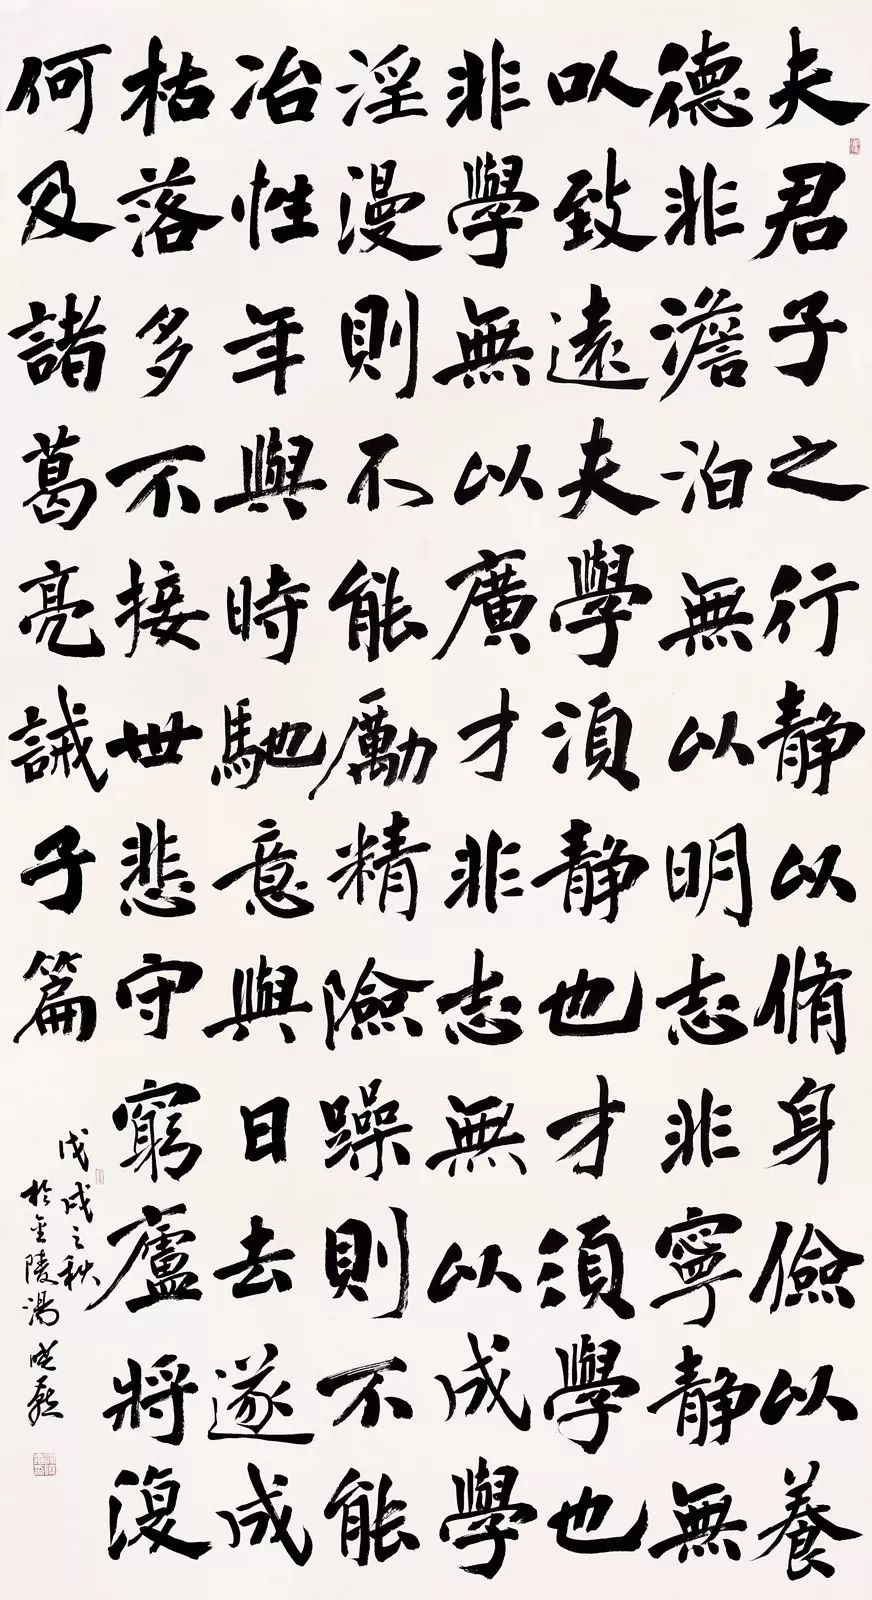 夫君子之行静以脩身儉以養
德非澹泊無以明志非寧静無
以致遠夫學須静也才須學也
非學無以廣才非志無以成學
淫漫則不能勵精險躁則不能
冶性年與時馳意與日去遂成
枯落多不接世悲守窮廬將復
何及諸葛亮誡子篇
戊戌之秋
於金陵湯